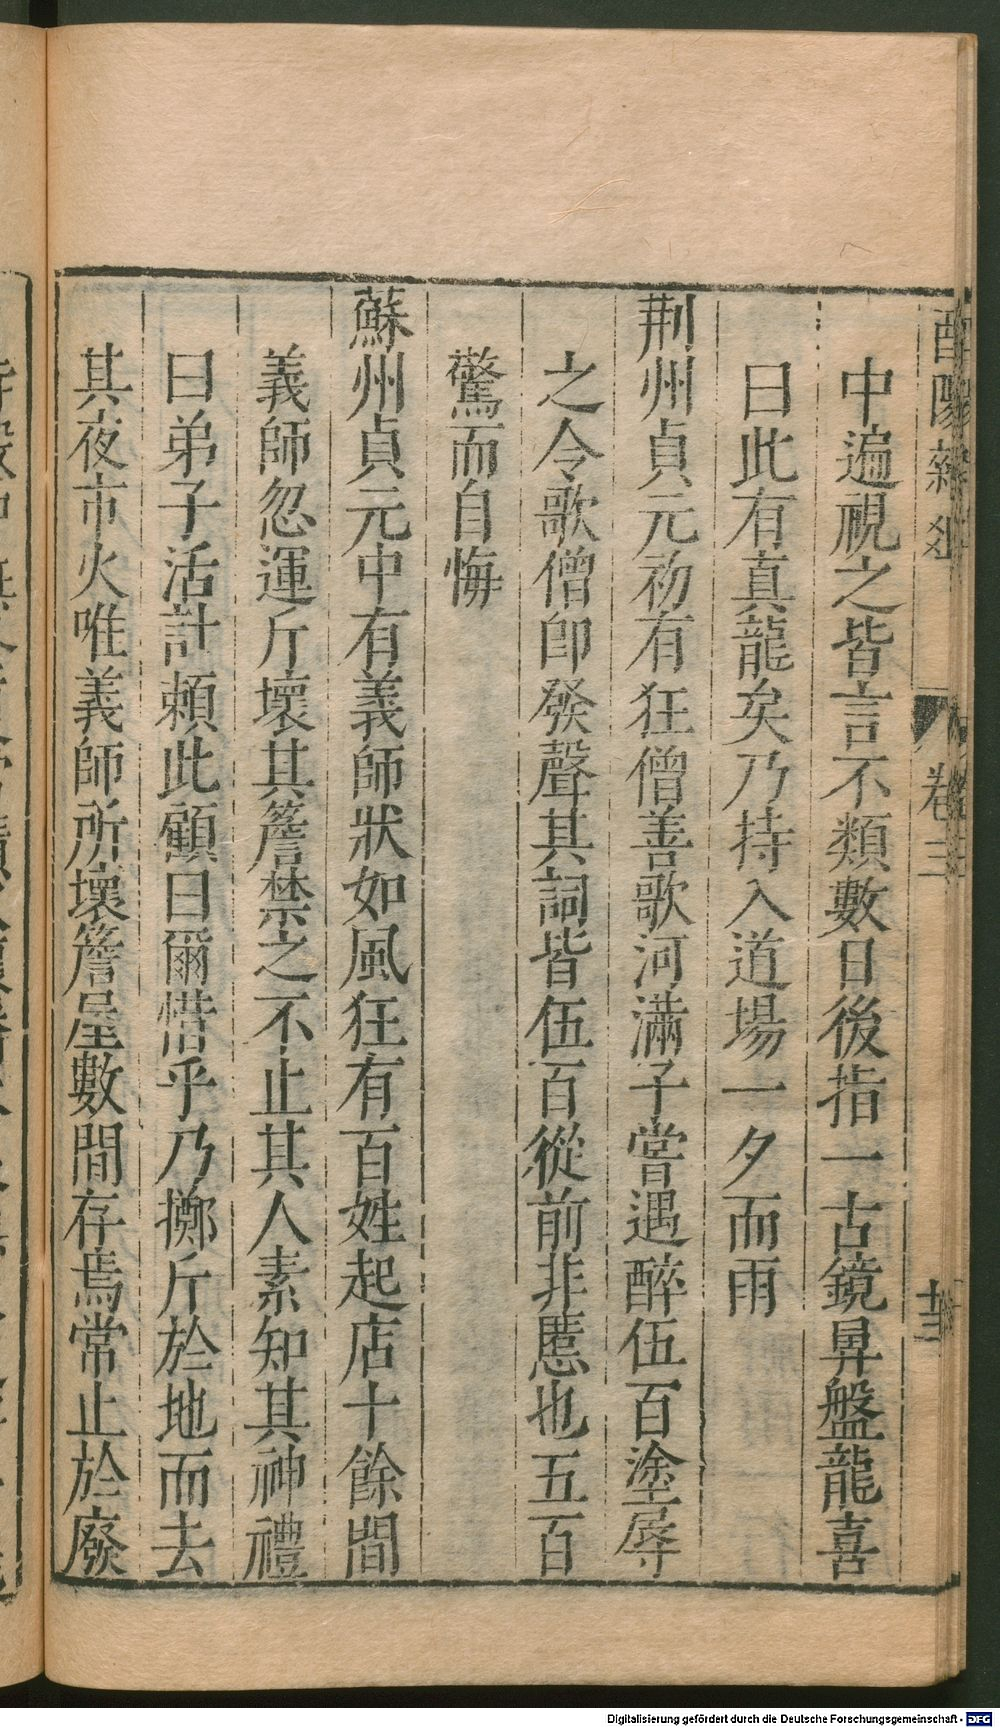 中遍視之皆言不類數日後指一古鏡昇盤龍喜
曰此有真龍矣乃持入道場一夕而雨
荆州貞元初有狂僧善歌河滿子嘗遇醉伍百塗辱
之令歌僧卽發聲其詞皆伍百從前非慝也五百
驚而自悔
蘇州貞元中有義師狀如風狂有百姓起店十餘間
義師忽運斤壞其簷禁之不止其人素知其神禮
曰弟子活計賴此顧曰爾惜乎乃擲斤於地而去
其夜市火唯義師所壞簷屋數間存焉常止於廢
卷三
Digitalisierung gefördert durch die Deutsche Forschungsgemeinschaft - DFG